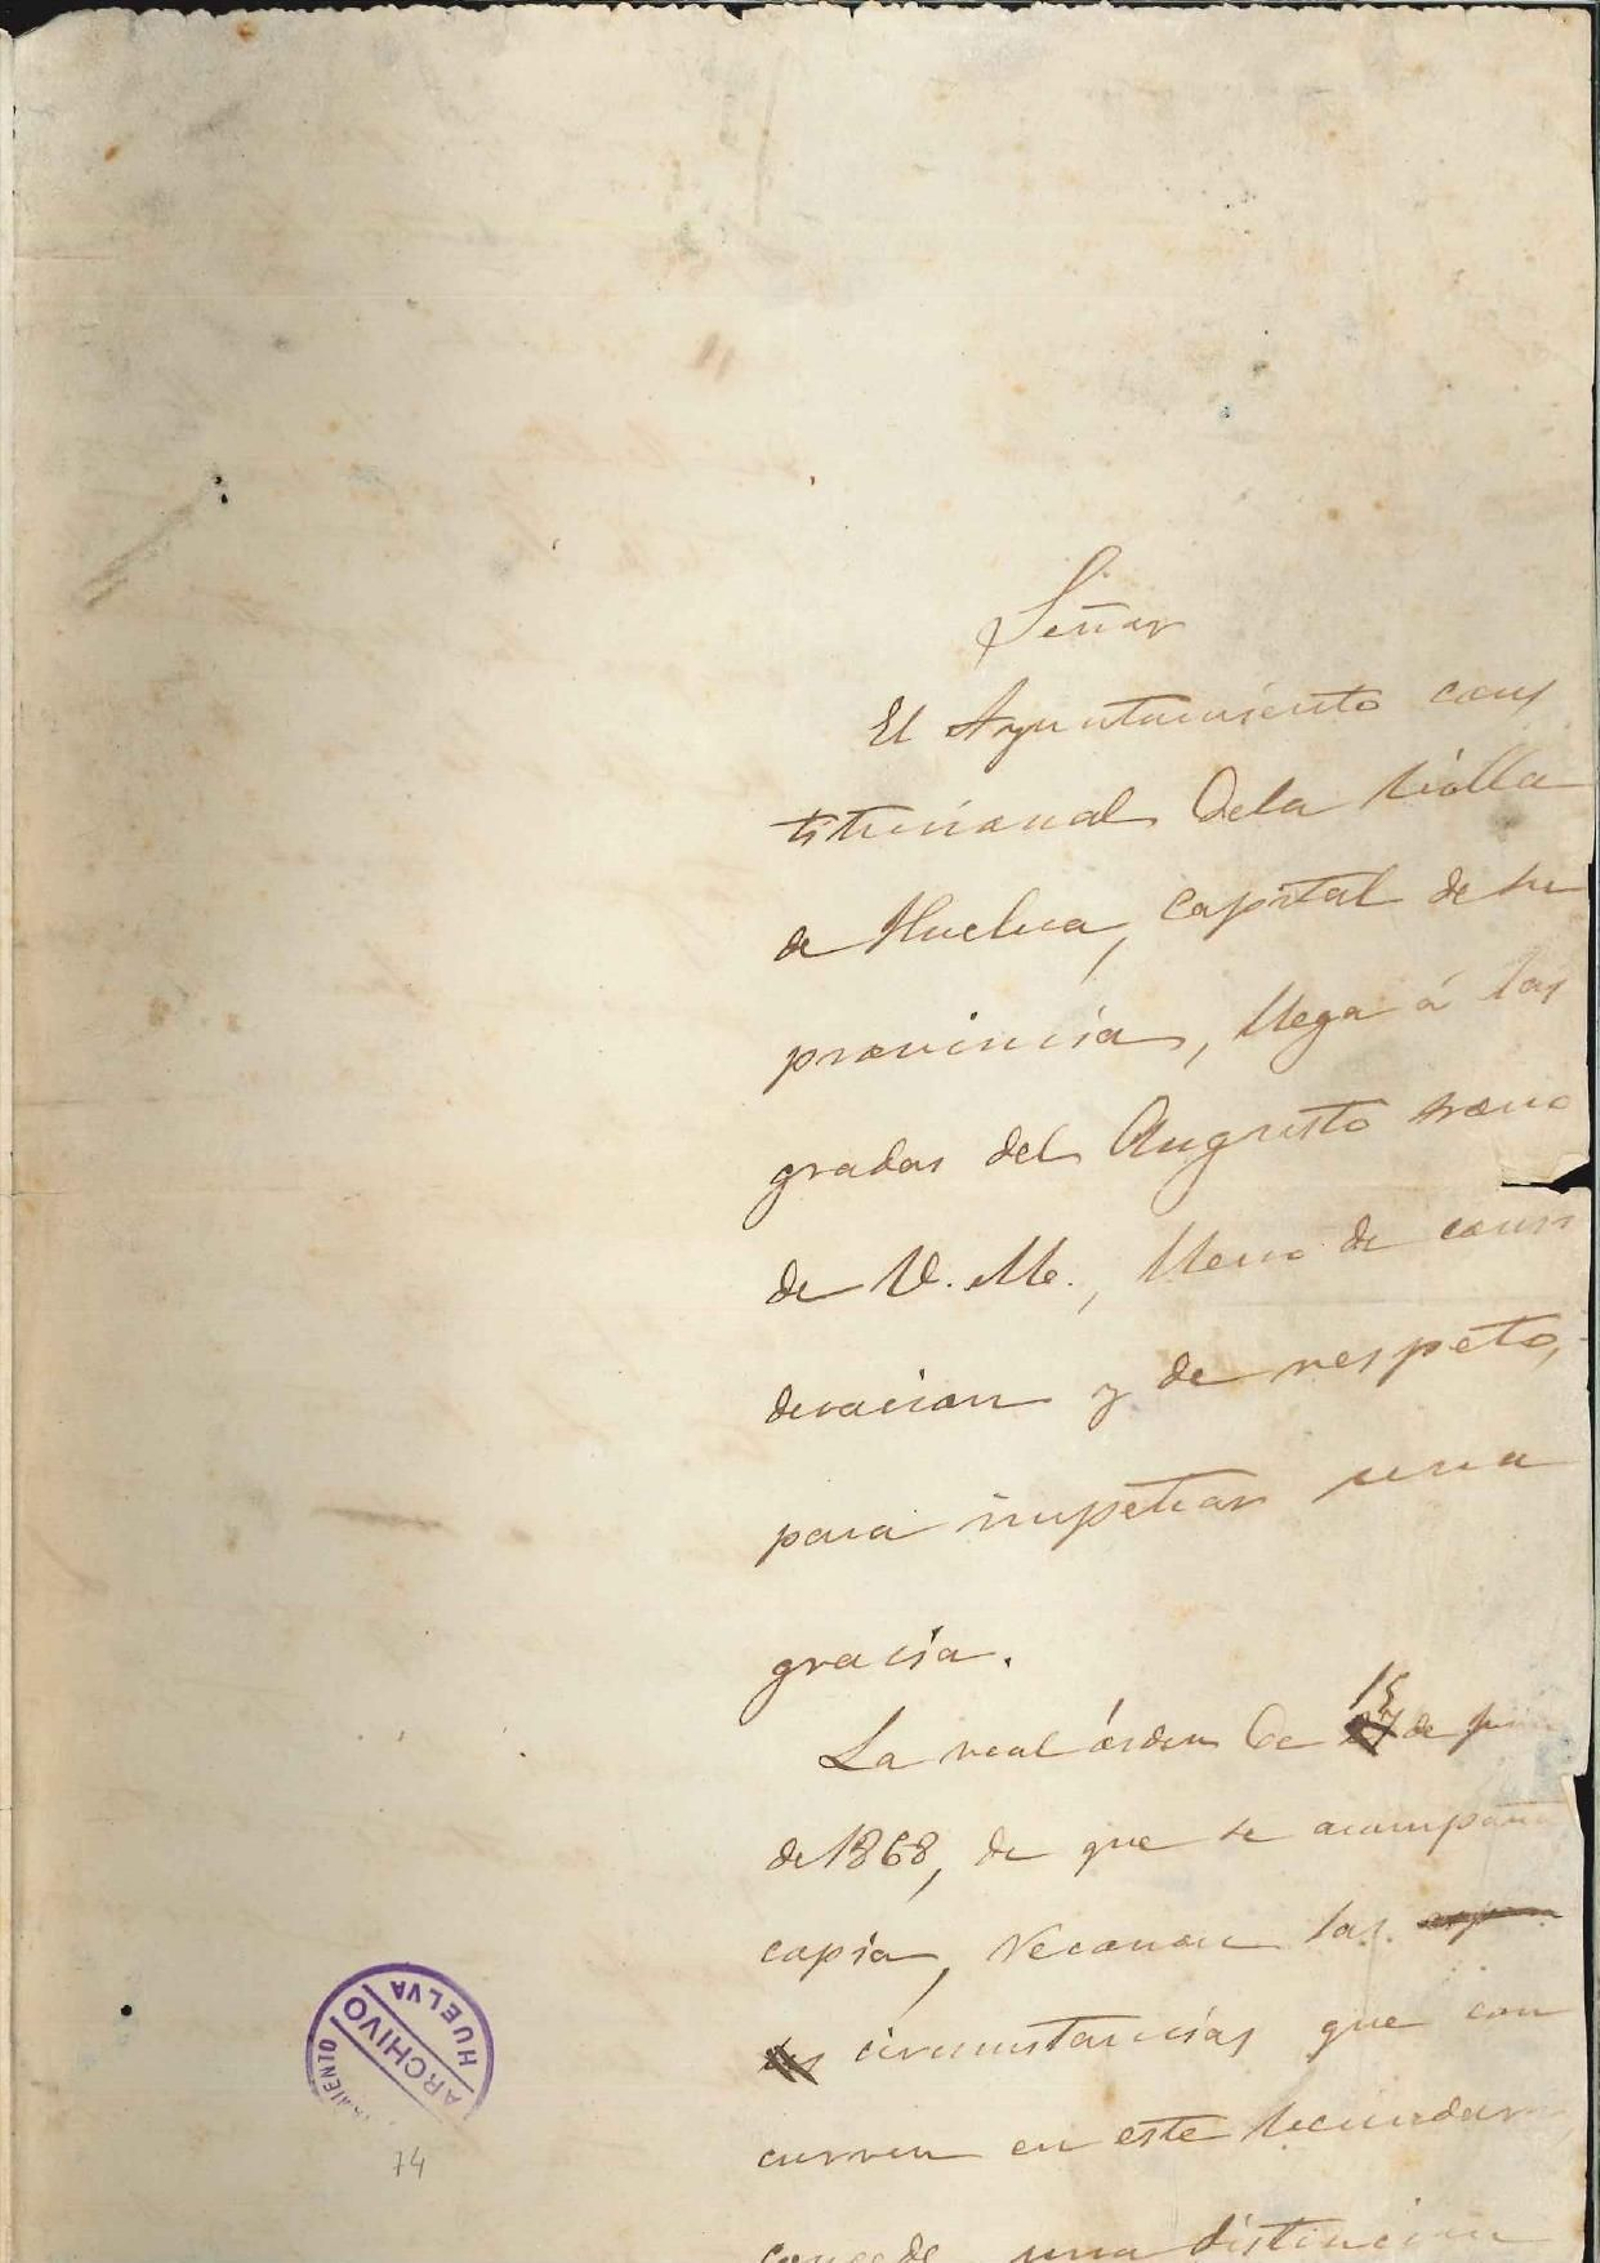 Señor
El Ayuntamiento cons
titucional dela Villa
de Huelva, capital de su
provincia, llega á las
gradas del Augusto trono
de V. M., lleno de consi
deracion y de respeto,
para impetrar una
gracia.
15
La real órden de 27 de juni
de 1868, de que se acompaña
copia, reconoce las
circunstancias que con
curren en este vecindario
concede una distincion
AYUNTAMIENTO
ARCHIVO
HUELVA
74